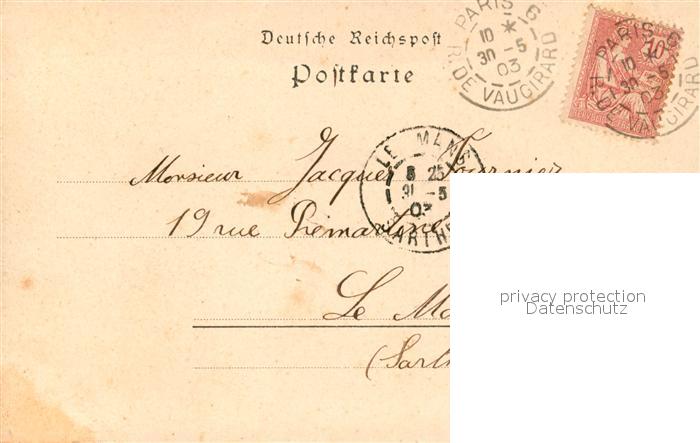 Deutsche Reichspost
Postkarte
PARIS 6
10 *
30 -5
03
R. DE VAUGIRARD
10
PARIS 6
10 *
30 -5
03
R. DE VAUGIRARD
LE MANS
8 25
31 -5
03
SARTHE
Monsieur Jacques Fournier
19 rue Prémartine
Le Ma
(Sart
privacy protection
Datenschutz